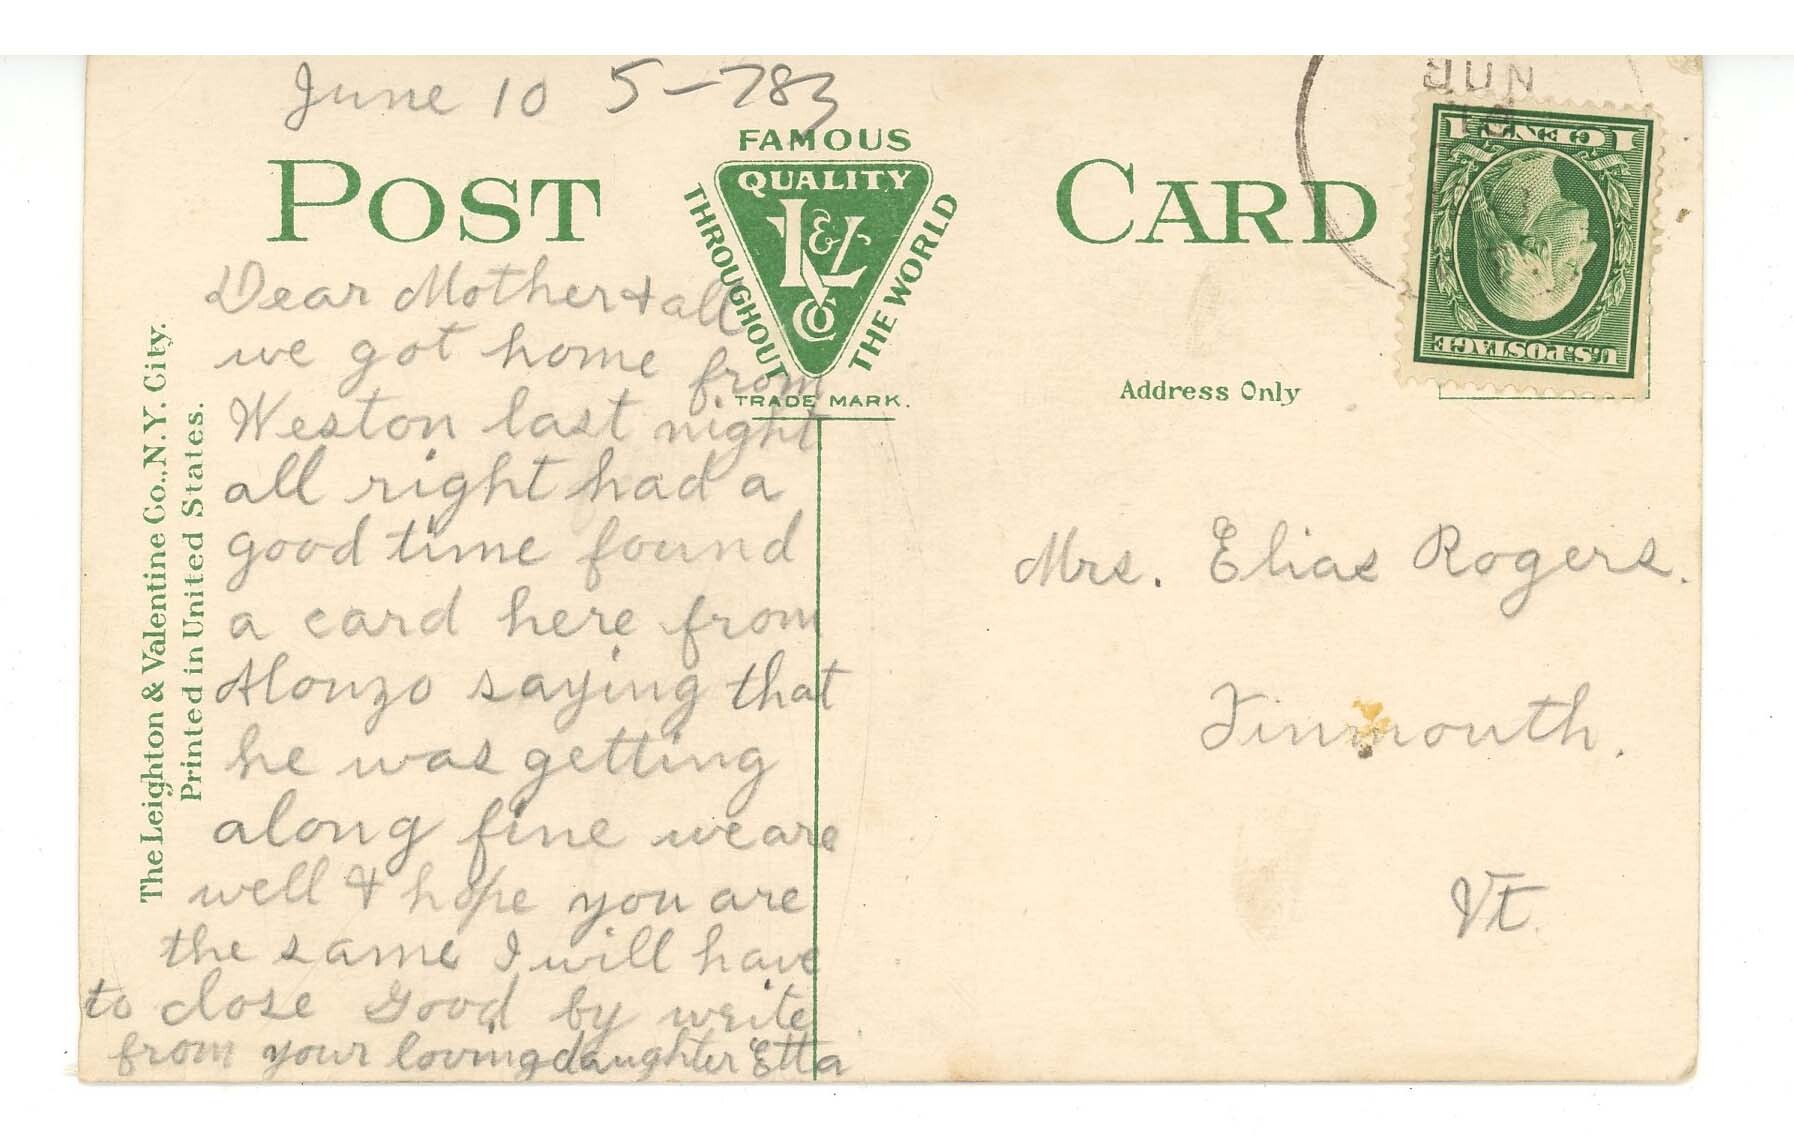 June 10 5-783
POST CARD
FAMOUS
QUALITY
THROUGHOUT
THE WORLD
L&V
Co
TRADE MARK.
JUN
10
1 CENT 1
U.S. POSTAGE
Address Only
The Leighton & Valentine Co., N.Y. City.
Printed in United States.
Dear Mother & all
we got home from
Weston last night
all right had a
good time found
a card here from
Alonzo saying that
he was getting
along fine we are
well & hope you are
the same I will have
to close Good by write
from your loving daughter Etta
Mrs. Elias Rogers.
Tinmouth.
Vt.